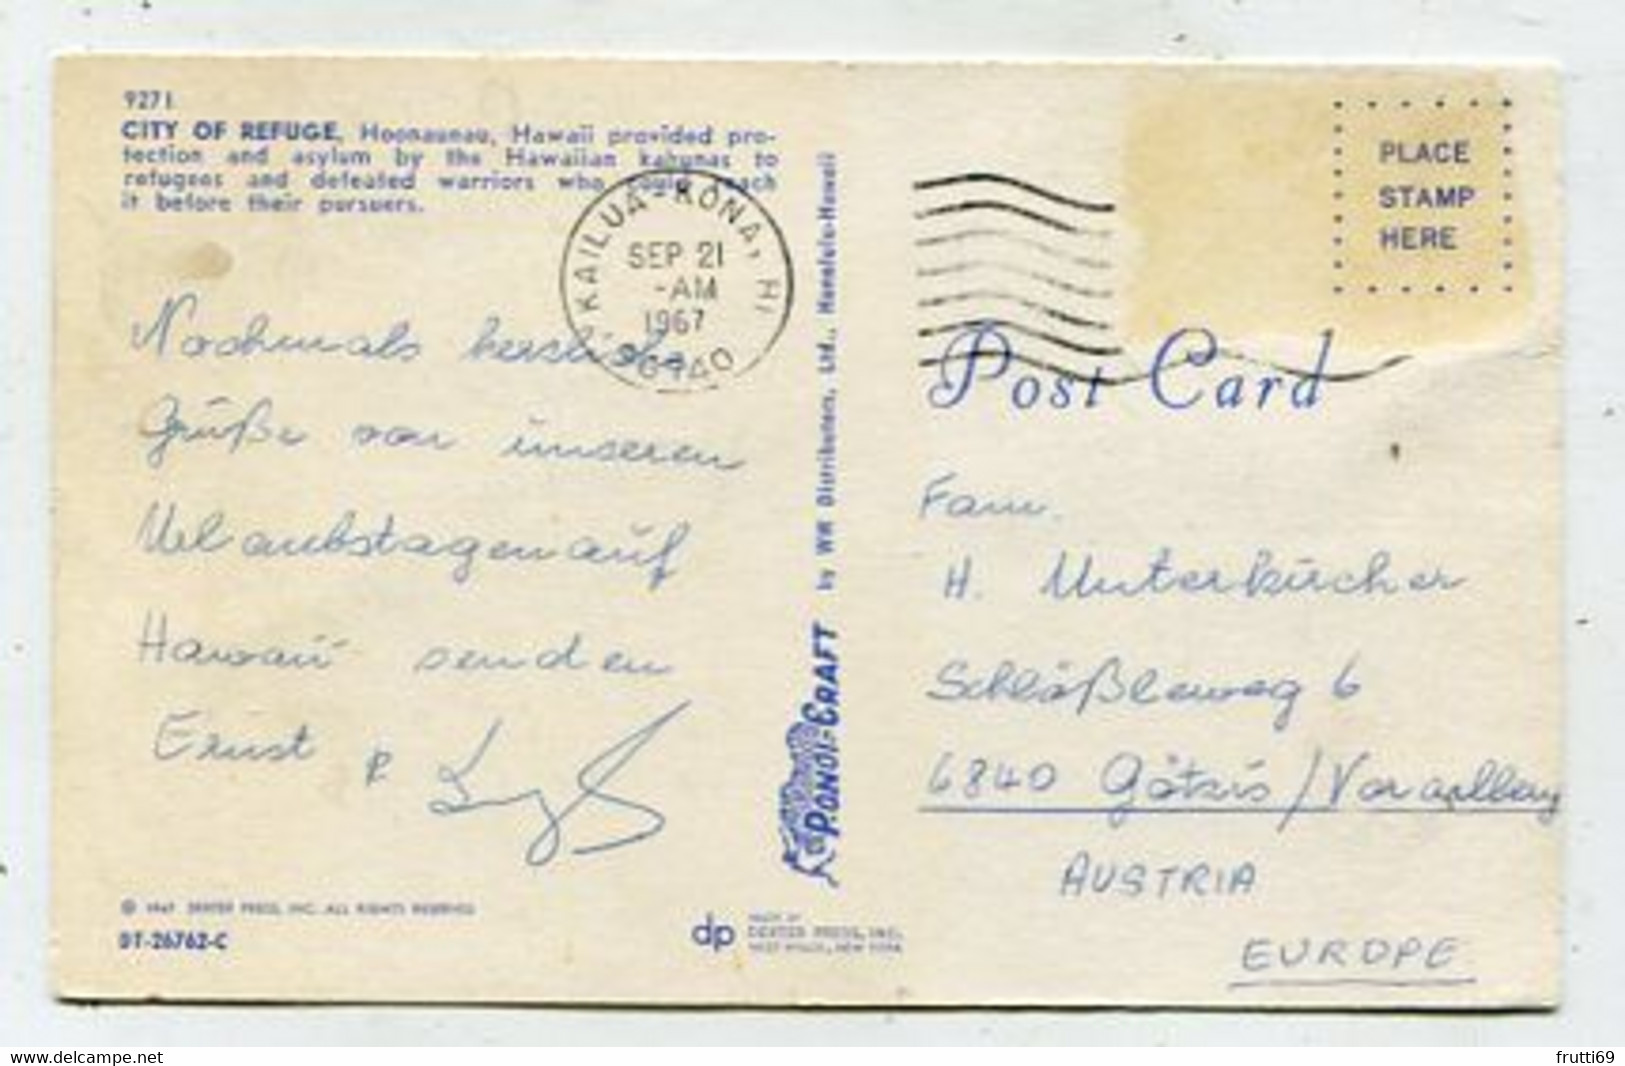 9271
CITY OF REFUGE, Hoonaunau, Hawaii provided pro-
tection and asylum by the Hawaiian kahunas to
refugees and defeated warriors who could reach
it before their pursuers.
KAILUA-KONA, HI
SEP 21
-AM
1967
96740
Nochmals herzliche
Grüße von unseren
Urlaubstagen auf
Hawaii senden
Ernst
© 1967 DEXTER PRESS, INC. ALL RIGHTS RESERVED
DT-26762-C
by WW Distributors, Ltd., Honolulu-Hawaii
PONOI-CRAFT
dp
MADE BY
DEXTER PRESS, INC.
WEST NYACK, NEW YORK
PLACE
STAMP
HERE
Post Card
Fam.
H. Unterkircher
Schlößleweg 6
6840 Götzis/Vorarlberg
AUSTRIA
EUROPE
www.delcampe.net
frutti69